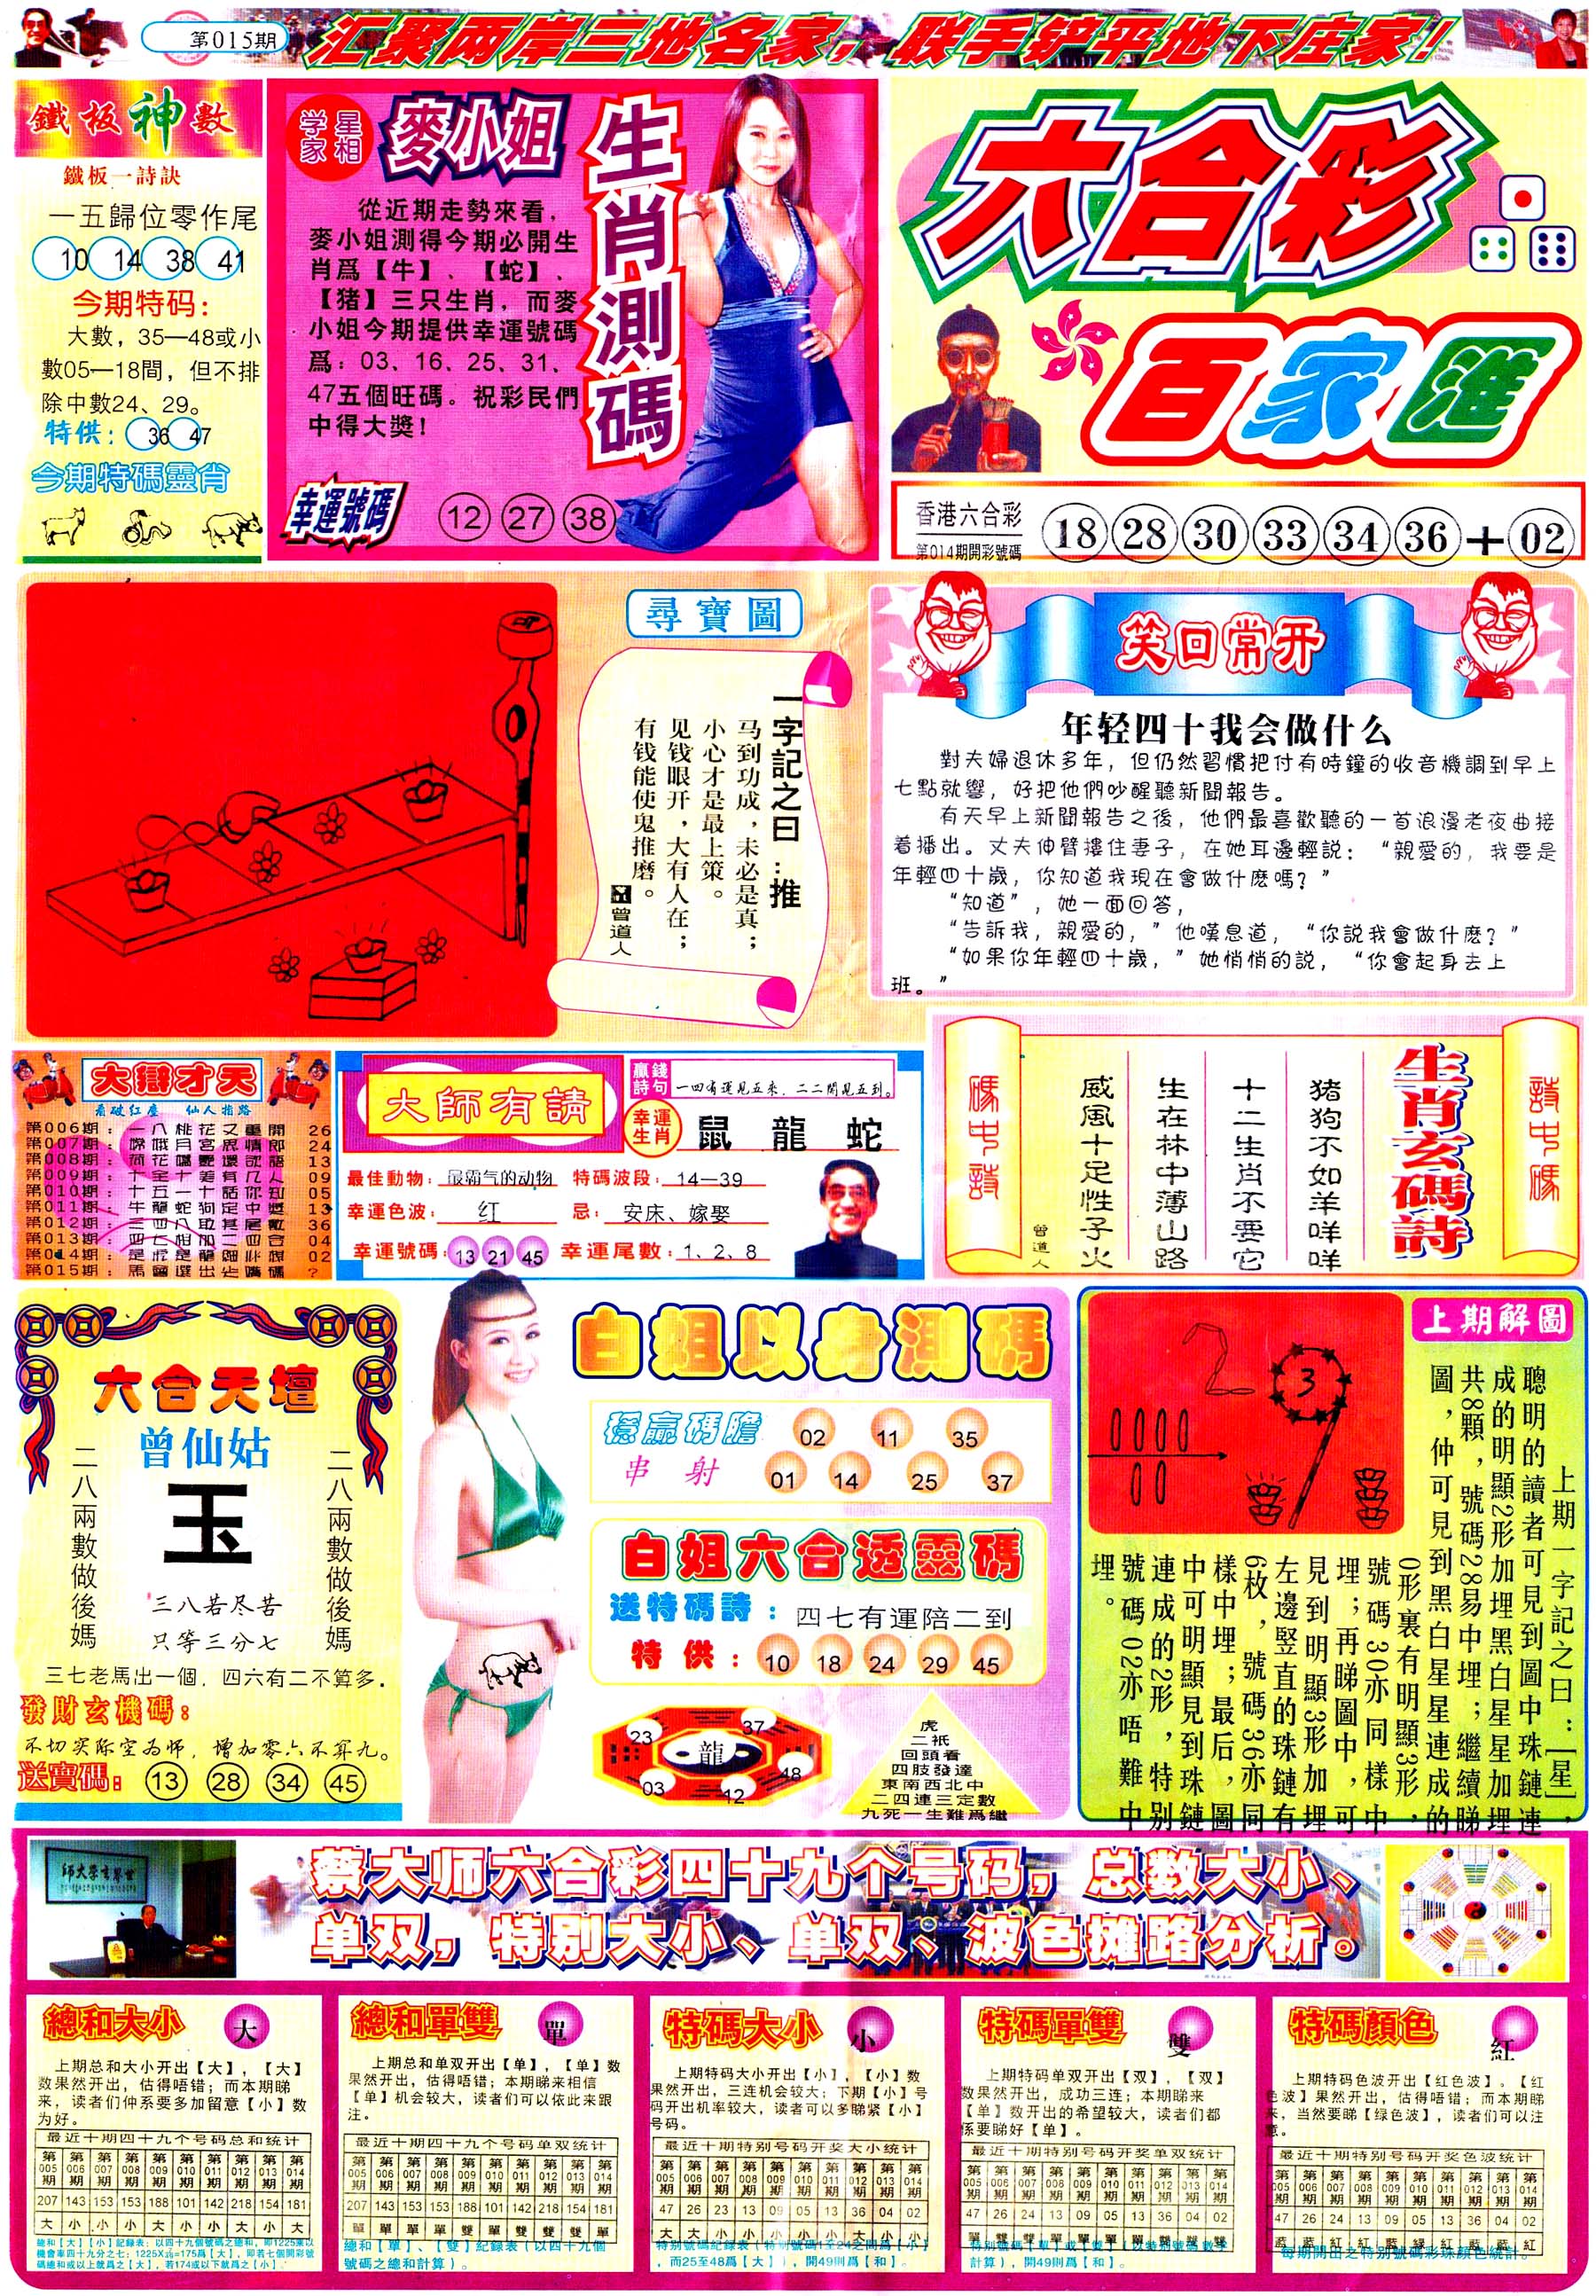 第015期
汇聚兩岸三地名家，联手铲平地下庄家！
鐵板神數
鐵板一詩訣
一五歸位零作尾
10 14 38 41
今期特码：
大數，35—48或小
數05—18間，但不排
除中數24、29。
特供：36 47
今期特碼靈肖
星相学家
麥小姐
生肖測碼
從近期走勢來看，
麥小姐測得今期必開生
肖爲【牛】、【蛇】、
【猪】三只生肖，而麥
小姐今期提供幸運號碼
爲：03、16、25、31、
47五個旺碼。祝彩民們
中得大獎！
幸運號碼
12 27 38
六合彩
百家匯
香港六合彩
第014期開彩號碼
18 28 30 33 34 36 + 02
尋寶圖
一字記之曰：推
马到功成，未必是真；
小心才是最上策。
见钱眼开，大有人在；
有钱能使鬼推磨。
曾道人
笑口常开
年轻四十我会做什么
對夫婦退休多年，但仍然習慣把付有時鐘的收音機調到早上
七點就響，好把他們吵醒聽新聞報告。
有天早上新聞報告之後，他們最喜歡聽的一首浪漫老夜曲接
着播出。丈夫伸臂摟住妻子，在她耳邊輕説：“親愛的，我要是
年輕四十歲，你知道我現在會做什麽嗎？”
“知道”，她一面回答，
“告訴我，親愛的，”他嘆息道，“你説我會做什麽？”
“如果你年輕四十歲，”她悄悄的説，“你會起身去上
班。”
大辯才天
看破红塵 仙人指路
第006期：一八桃花之重開 26
第007期：嫦娥月宮思情郎 24
第008期： 13
第009期：十全十美有几人 09
第010期：十五一十話你知 05
第011期：牛龍蛇狗定中獎 13
第012期： 36
第013期：四七相加二四合 04
第014期： 02
第015期： ？
大師有請
贏錢詩句
一四有運見五來，二二開見五到。
幸運生肖
鼠 龍 蛇
最佳動物：最霸气的动物 特碼波段：14—39
幸運色波：红 忌：安床、嫁娶
幸運號碼：13 21 45 幸運尾數：1、2、8
詩中碼
生肖玄碼詩
猪狗不如羊咩咩
十二生肖不要它
生在林中薄山路
威風十足性子火
曾道人
碼中詩
六合天壇
曾仙姑
二八兩數做後媽
玉
二八兩數做後媽
三八若尽苦
只等三分七
三七老馬出一個，四六有二不算多.
發財玄機碼：
不切实际空为师，增加零六不算九。
送寶碼：13 28 34 45
白姐以身測碼
穩贏碼膽
02 11 35
串射
01 14 25 37
白姐六合透靈碼
送特碼詩：四七有運陪二到
特供：10 18 24 29 45
23 37 龍 03 12 48
虎
二祇
回頭看
四肢發達
東南西北中
二四連三定數
九死一生難爲繼
2 3
上期解圖
上期一字記之曰：［星］，
聰明的讀者可見到圖中珠鏈連
成的明顯2形加埋黑白星星加埋
共8顆，號碼28易中埋；繼續睇
圖，仲可見到黑白星星連成的
0形裏有明顯3形，
號碼30亦同樣中
埋；再睇圖中，可
見到明顯3形加埋
左邊竪直的珠鏈有
6枚，號碼36亦同
樣中埋；最后，圖
中可明顯見到珠鏈
連成的2形，特别
號碼02亦唔難中
埋。
世界玄學大師
蔡大师六合彩四十九个号码，总数大小、
单双，特别大小、单双、波色摊路分析。
總和大小 大
上期总和大小开出【大】，【大】
数果然开出，估得唔错；而本期睇
来，读者们仲系要多加留意【小】数
为好。
最近十期四十九个号码总和统计
第005期 第006期 第007期 第008期 第009期 第010期 第011期 第012期 第013期 第014期
207 143 153 153 188 101 142 218 154 181
大 小 小 小 大 小 小 大 小 大
總和單雙 單
上期总和单双开出【单】，【单】数
果然开出，估得唔错；本期睇来相信
【单】机会较大，读者们可以依此来跟
注。
最近十期四十九个号码单双统计
第005期 第006期 第007期 第008期 第009期 第010期 第011期 第012期 第013期 第014期
207 143 153 153 188 101 142 218 154 181
單 單 單 單 雙 單 雙 雙 雙 單
總和【單】、【雙】紀録表（以四十九個
號碼之總和計算）。
特碼大小 小
上期特码大小开出【小】，【小】数
果然开出，三连机会较大；下期【小】号
码开出机率较大，读者可以多睇紧【小】
号码。
最近十期特别号码开奖大小统计
第005期 第006期 第007期 第008期 第009期 第010期 第011期 第012期 第013期 第014期
47 26 23 13 09 05 13 36 04 02
大 大 小 小 小 小 小 大 小 小
特别號碼紀録表（特别號碼1至24之間爲【小】
，而25至48爲【大】，開49則爲【和】。
特碼單雙 雙
上期特码单双开出【双】，【双】
数果然开出，成功三连；本期睇来
【单】数开出的希望较大，读者们都
係要睇好【单】。
最近十期特别号码开奖单双统计
第005期 第006期 第007期 第008期 第009期 第010期 第011期 第012期 第013期 第014期
47 26 24 13 09 05 13 36 04 02
單 雙 雙 單 單 單 單 雙 雙 雙
計算），開49則爲【和】。
特碼顏色 紅
上期特码色波开出【红色波】。【红
色波】果然开出，估得唔错；而本期睇
来，当然要睇【绿色波】，读者们可以注
意。
最近十期特别号码开奖色波统计
第005期 第006期 第007期 第008期 第009期 第010期 第011期 第012期 第013期 第014期
47 26 24 13 09 05 13 36 04 02
藍 藍 紅 紅 藍 綠 紅 藍 藍 紅
每期開出之特别號碼彩珠顏色統計。